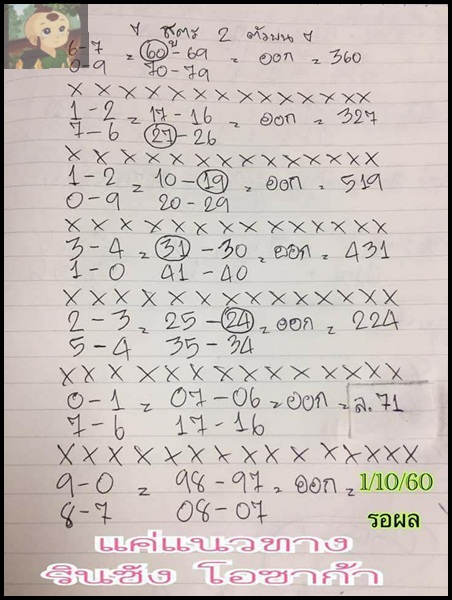 สูตร 2 ตัวบน
6-7 = 60-69 = ออก = 360
0-9 70-79
X X X X X X X X X X X X X X X
1-2 = 17-16 = ออก = 327
7-6 27-26
X X X X X X X X X X X X X X
1-2 = 10-19 = ออก = 519
0-9 20-29
X X X X X X X X X X X X X X
3-4 = 31-30 = ออก = 431
1-0 41-40
X X X X X X X X X X X X X X
2-3 = 25-24 = ออก = 224
5-4 35-34
X X X X X X X X X X X X X X
0-1 = 07-06 = ออก = ล.71
7-6 17-16
X X X X X X X X X X X X X X X
9-0 = 98-97 = ออก = 1/10/60
8-7 08-07 รอผล
แค่แนวทาง
รินชัง โอซาก้า